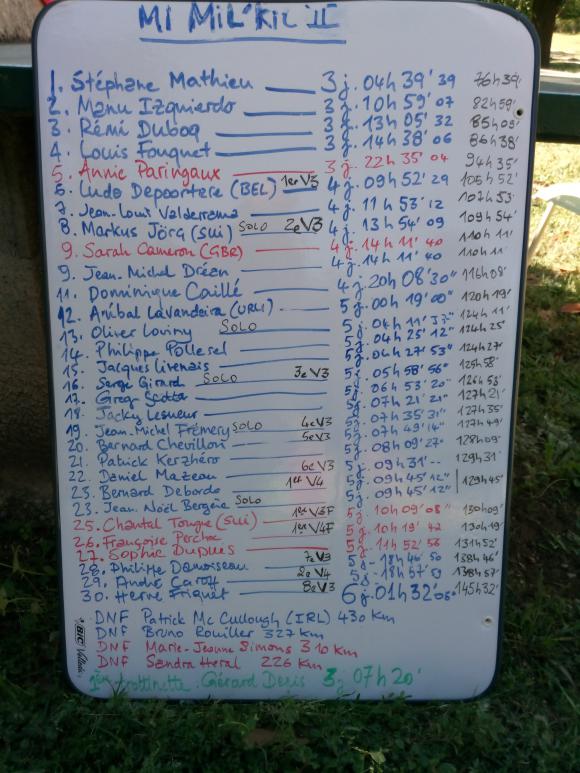 MI MiL'KiL II
1. Stéphane Mathieu 3j. 04h 39' 39 76h39'
2. Manu Izquierdo 3j. 10h 59' 07 82h59'
3. Rémi Duboq 3j. 13h 05' 32 85h05'
4. Louis Fouquet 3j. 14h 38' 06 86h38'
5. Annie Paringaux 3j. 22h 35' 04 94h35'
6. Ludo Depoortere (BEL) 1er V3 4j. 09h 52' 29 105h52'
7. Jean-Louis Valderrama 4j. 11h 53' 12 107h53
8. Markus Jörg (SUI) SOLO 2e V3 4j. 13h 54' 09 109h54'
9. Sarah Cameron (GBR) 4j. 14h 11' 40 110h11'
9. Jean-Michel Dréan 4j. 14h 11' 40 110h11'
11. Dominique Caillé 4j. 20h 08' 30" 116h08'
12. Aníbal Lavandeira (URU) 5j. 00h 19' 00" 120h19'
13. Oliver Loviny SOLO 5j. 04h 11' 124h11'
14. Philippe Pollesel 5j. 04h 25' 12" 124h25'
15. Jacques Livenais 5j. 04h 27' 53" 124h27'
16. Serge Girard SOLO 3e V3 5j. 05h 58' 56" 125h58'
17. Greg 5j. 06h 53' 20" 126h53'
18. Jacky Lesueur 5j 07h 21' 21" 127h21'
19. Jean-Michel Frémery SOLO 4e V3 5j. 07h 35' 31" 127h35'
20. Bernard Chevillon 5e V3 5j. 07h 49' 14" 127h49'
21. Patrick Kerzhéro 5j. 08h 09' 27" 128h09'
22. Daniel Mazeau 6e V3 5j. 09h 31' -- 129h31'
23. Bernard Deborde 1er V4 5j. 09h 45' 12" 129h45'
23. Jean-Noël Bergère SOLO 5j. 09h 45' 12"
25. Chantal Tongue (SUI) 1ère V3F 5j. 10h 09' 08" 130h09'
26. Françoise Perchoc 1ère V4F 5j. 10h 19' 42 130h19'
27. Sophie Duples 5j. 11h 52' 56 131h52'
28. Philippe Damoiseau 7e V3 5j. 18h 46' 50 138h46'
29. André Caroff 2e V4 5j. 18h 57' 138h57'
30. Hervé Friquet 8e V3 6j. 01h 32' 05" 145h32'
DNF Patrick Mc Cullough (IRL) 430 km
DNF Bruno Rouiller 327 km
DNF Marie-Jeanne Simons 310 km
DNF Sandra Heral 226 km
1ère trottinette. Gérard Denis 3j 07h 20'
BIC Velleda